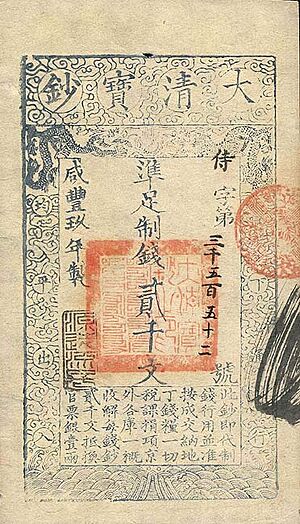 大清寶鈔
侍字第三千五百五十二號
準足制錢貳千文
咸豐玖年製
此鈔即代制
錢行用並准
按成交納地
丁錢糧一切
稅課捐項京
外各庫一概
收解每錢鈔
貳千文抵換
官票銀壹兩